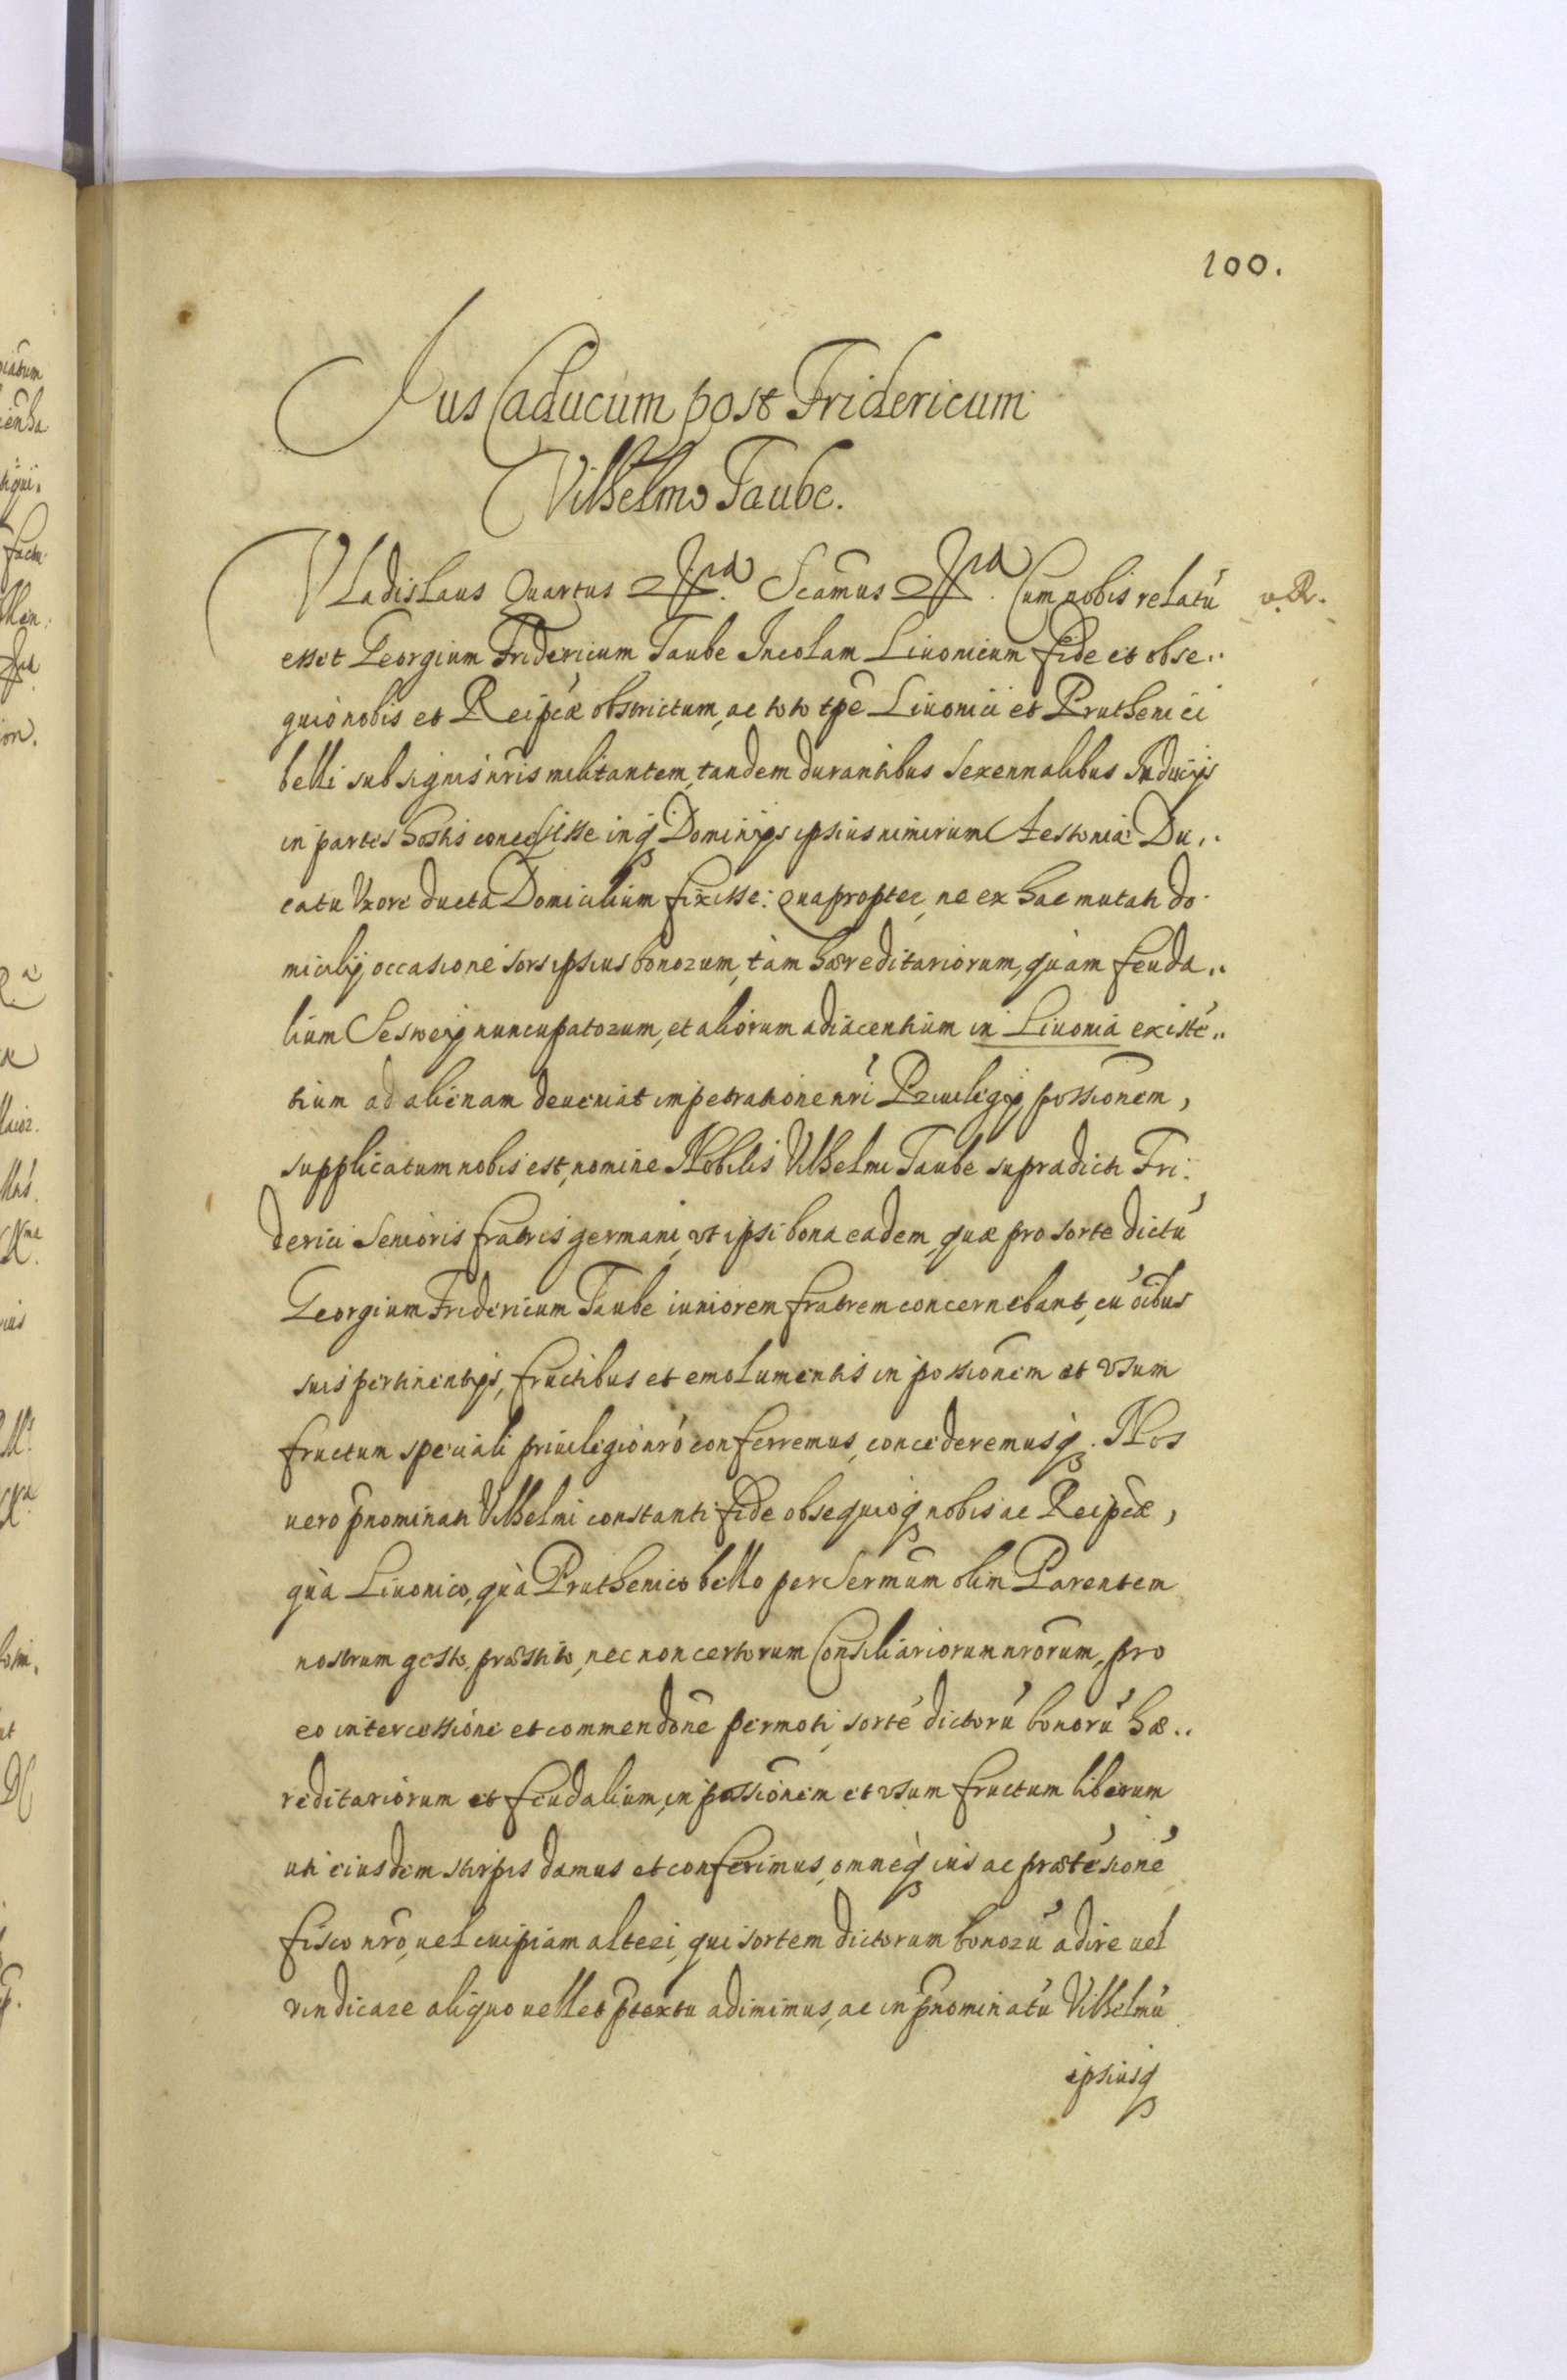 100.
Jus Caducum post Fridericum
Vilhelmo Taube.
VLadislaus Quartus &ra. Scamus &ra. Cum nobis relatū v.R.
esset Georgium Fridericum Taube Incolam Liuonicum fide et obse..
quio nobis et Reipcæ obstrictum, ac toto tpe Liuonici et Pruthenici
belli sub signis nris militantem, tandem durantibus sexennalibus Inducijs
in partes hostis concessisse inq Dominijs ipsius nimirum Aestoniæ Du..
catu Vxore ducta Domicilium fixisse: Quapropter, ne ex hac mutati do-
micilij occasione sors ipsius bonorum, tàm hæreditariorum, quàm feuda..
lium Sesweij nuncupatorum, et aliorum adiacentium in Liuonia existē..
tium ad alienam deueniat impetratione nri Priuilegij possionem,
supplicatum nobis est, nomine Nobilis Vilhelmi Taube supradicti Fri:
derici Senioris fratris germani, vt ipsi bona eadem, quæ pro sorte dictū
Georgium Fridericum Taube iuniorem fratrem concernebant, cū oibus
suis pertinentijs, fructibus et emolumentis in possionem et vsum
fructum speciali priuilegio nro conferremus, concederemusq. Nos
uero pnominati Vilhelmi constanti fide obsequioq nobis ac Reipcæ,
quà Liuonico, quà Pruthenico bello per Sermum olim Parentem
nostrum gesto, præstito, nec non certorum Consiliariorum nrorum, pro
eo intercessione et commendone permoti, sortē dictorū bonorū hæ..
reditariorum et feudalium, in possionem et vsum fructum liberum
uti eiusdem stirpis damus et conferimus, omneq ius ac prætēsionē
fisco nro, uel cuipiam alteri, qui sortem dictorum bonorū adire uel
vindicare aliquo uellet ptextu adimimus, ac in pnominatū Vilhelmū
ipsiusq